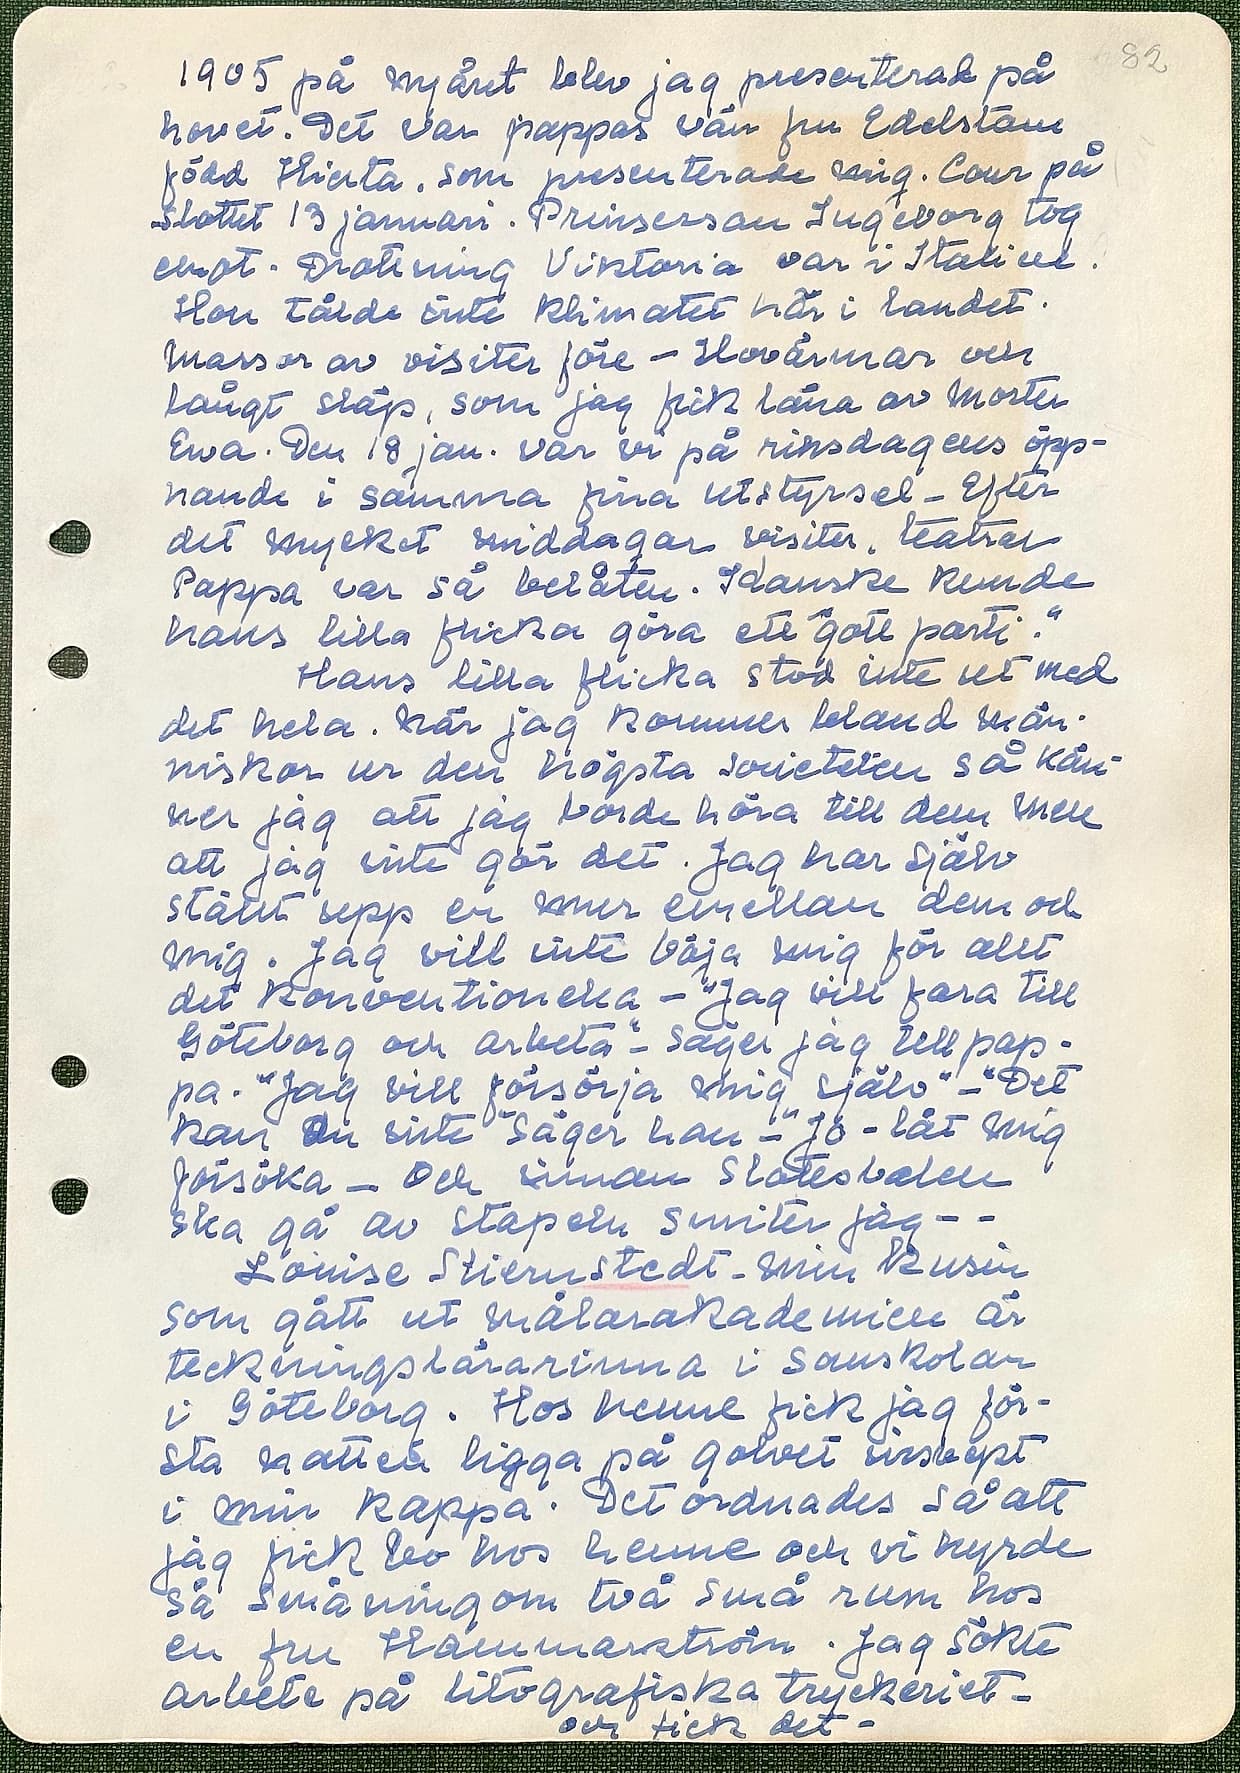 82
1905 på nyåret blev jag presenterad på
hovet. Det var pappas vän fru Edelstam
född Hierta, som presenterade mig. Cour på
slottet 13 januari. Prinsessan Ingeborg tog
emot. Drottning Viktoria var i Italien.
Hon tålde inte klimatet här i landet.
Massor av visiter före – Hovärmar och
långt släp, som jag fick låna av Moster
Ewa. Den 18 jan. var vi på riksdagens öpp-
nande i samma fina utstyrsel – Efter
det mycket middagar visiter, teatrar
Pappa var så belåten. Kanske kunde
hans lilla flicka göra ett "gott parti."
Hans lilla flicka stod inte ut med
det hela. När jag kommer bland män-
niskor ur den högsta societeten så kän-
ner jag att jag borde höra till dem men
att jag inte gör det. Jag har själv
ställt upp en mur emellan dem och
mig. Jag vill inte böja mig för allt
det konventionella – "Jag vill fara till
Göteborg och arbeta" – säger jag till pap-
pa. "Jag vill försörja mig själv" – "Det
kan Du inte" säger han – "Jo – låt mig
försöka – Och innan Slottsbalen
ska gå av stapeln smiter jag – –
Louise Stiernstedt – min kusin
som gått ut målarakademien är
teckningslärarinna i samskolan
i Göteborg. Hos henne fick jag för-
sta natten ligga på golvet insvept
i min kappa. Det ordnades så att
jag fick bo hos henne och vi hyrde
så småningom två små rum hos
en fru Hammarström. Jag sökte
arbete på litografiska tryckeriet –
och fick det –